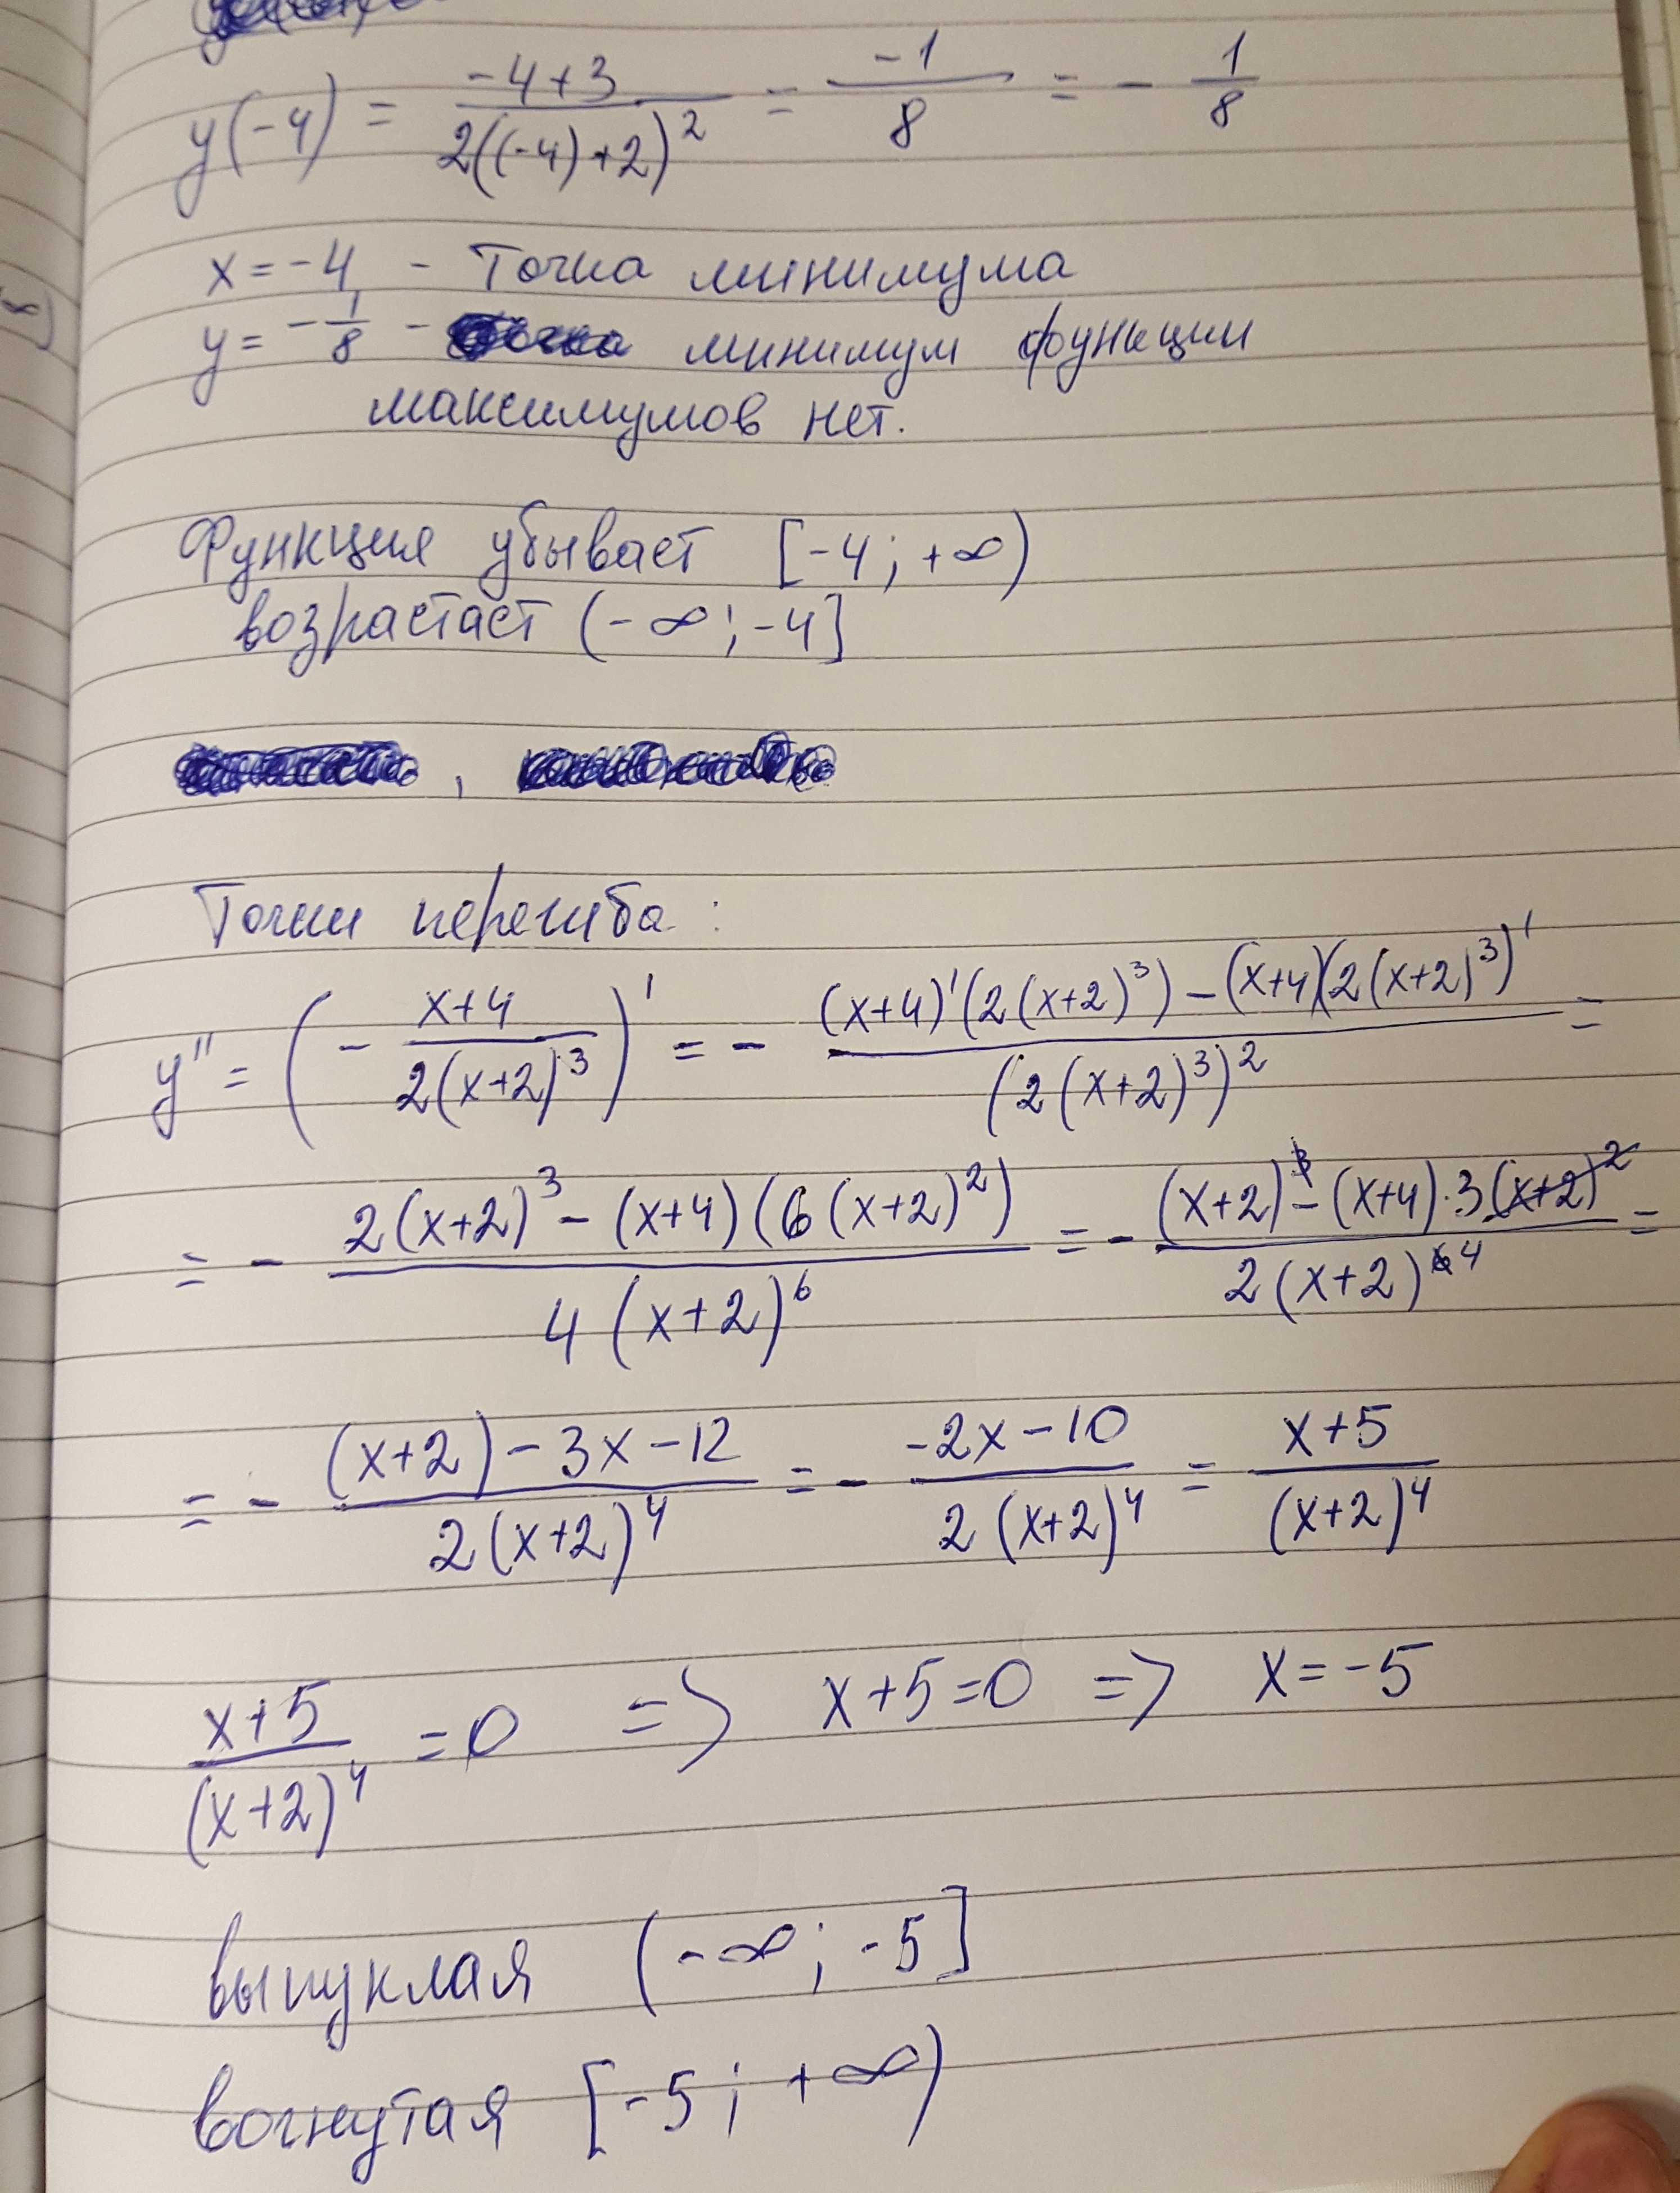 y(-4) = (-4+3)/(2((-4)+2)²) = -1/8 = - 1/8
x = -4 - точка минимума
y = -1/8 - минимум функции
максимумов нет.
Функция убывает [-4; +∞)
возрастает (-∞; -4]
Точки перегиба:
y'' = (- (x+4)/(2(x+2)³))' = - ((x+4)'(2(x+2)³) - (x+4)(2(x+2)³)')/((2(x+2)³)²) =
= - (2(x+2)³ - (x+4)(6(x+2)²))/(4(x+2)⁶) = - ((x+2) - (x+4)·3(x+2)²)/(2(x+2)⁴) =
= - ((x+2) - 3x - 12)/(2(x+2)⁴) = - (-2x - 10)/(2(x+2)⁴) = (x+5)/((x+2)⁴)
(x+5)/((x+2)⁴) = 0 => x+5=0 => x = -5
выпуклая (-∞; -5]
вогнутая [-5; +∞)